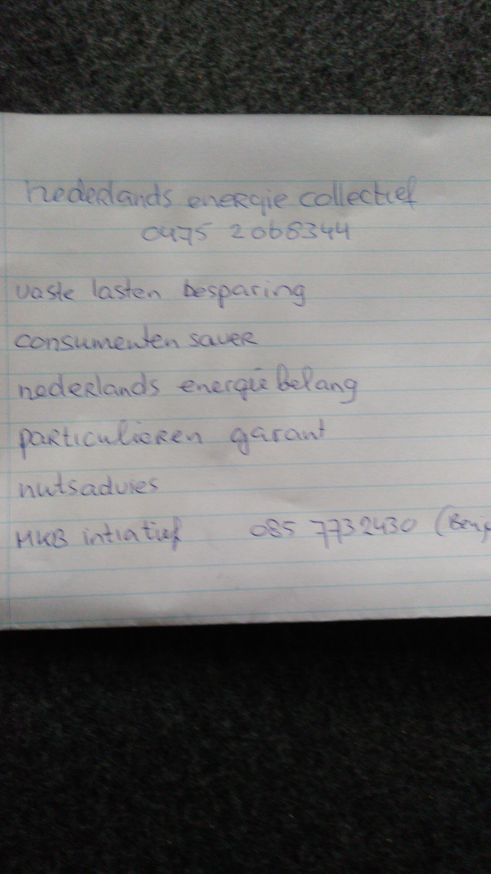 nederlands energie collectief
0475 2068344
vaste lasten besparing
consumenten saver
nederlands energie belang
particulieren garant
nutsadvies
MKB intiatief 085 7732430 (Benj